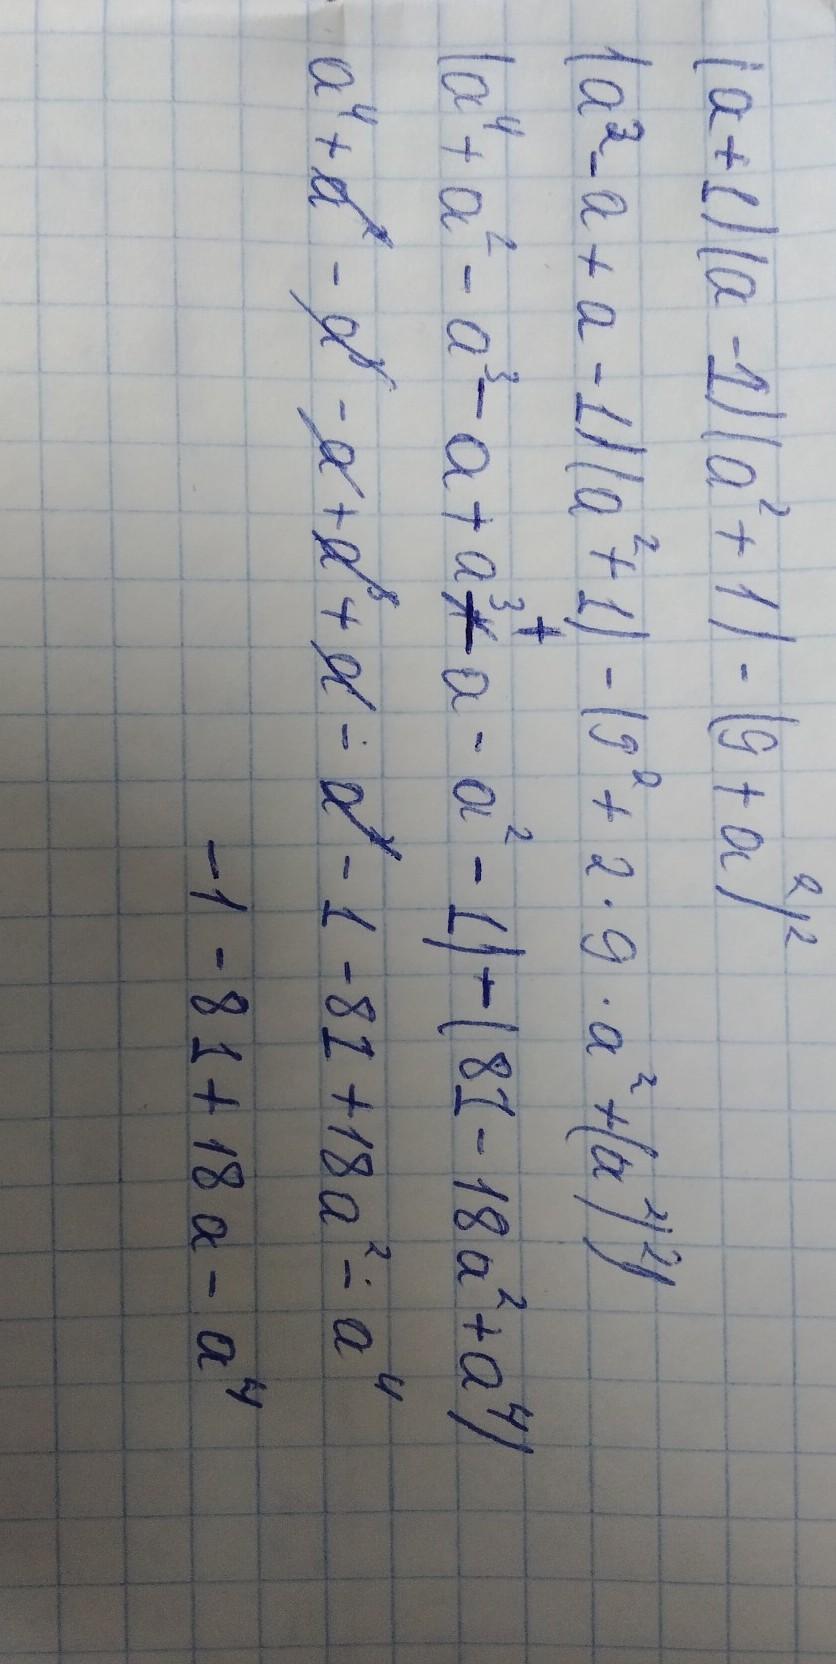 (a+1)(a-1)(a²+1)-(9+a²)²
(a²-a+a-1)(a²+1)-(9²+2·9·a²+(a²)²)
(a⁴+a²-a³-a+a³+a-a²-1)-(81-18a²+a⁴)
a⁴+a²-a³-a+a³+a-a²-1-81+18a²-a⁴
-1-81+18a-a⁴